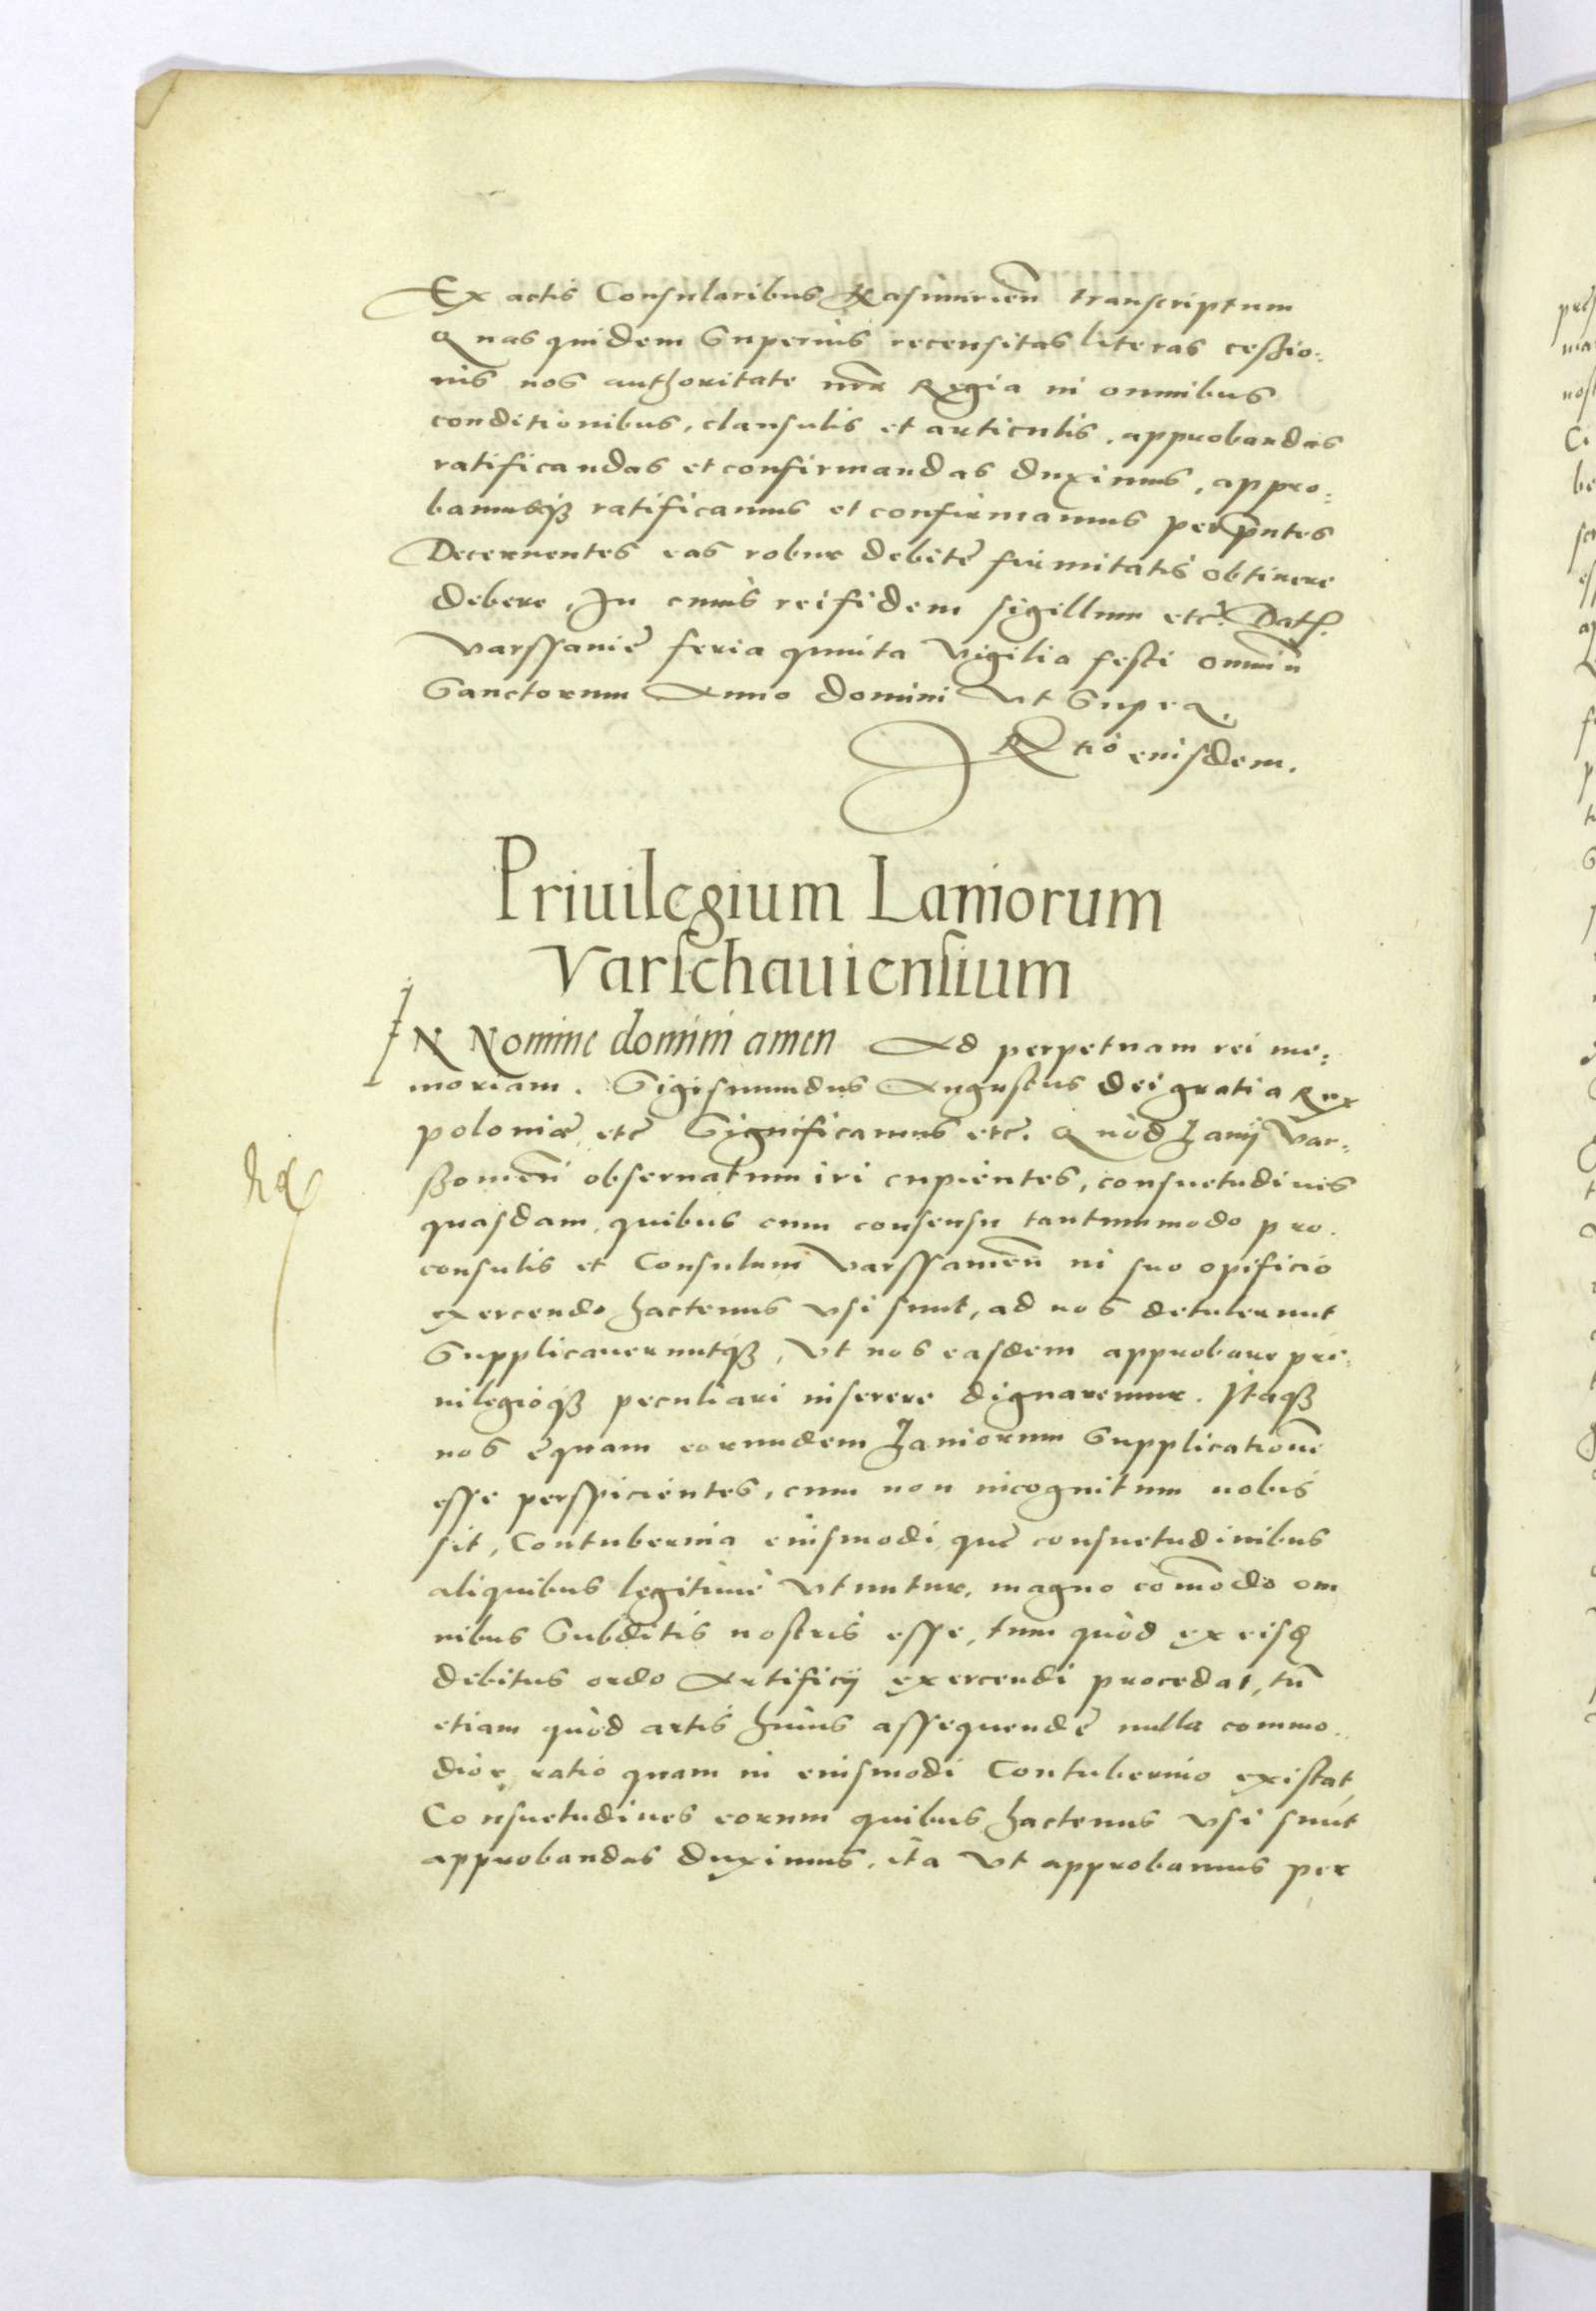 Ex actis Consularibus Kasimirien̄ transcriptum
Quas quidem superius recensitas literas cessio:
nis nos authoritate nr̄a Regia in omnibus
conditionibus, clausulis et articulis, approbandas
ratificandas et confirmandas duximus, appro:
bamusq; ratificamus et confirmamus per p̄ntes
Decernentes eas robur debitę firmitatis obtinere
debere, In cuius rei fidem sigillum etc̄. Dat.
Varssavię feria quinta Vigilia festi omniū
Sanctorum Anno domini Vt supra.
R̄tio eiusdem.
Priuilegium Laniorum
Varschauiensium
IN Nomine domini amen Ad perpetuam rei me:
moriam. Sigismundus Augustus dei gratia Rex
polonię etc̄ Significamus etc̄. Quòd Lanij Var:
ssouien̄ obseruatum iri cupientes, consuetudines
quasdam, quibus cum consensu tantummodo pro.
consulis et Consulum Varssauien̄ in suo opificio
exercendo hactenus vsi sunt, ad nos detulerunt
Supplicaueruntq;, Vt nos easdem approbare pri:
uilegioq; peculiari inserere dignaremur. Itaq;
nos ęquam eorundem Laniorum Supplicationē
esse perspicientes, cum non incognitum nobis
sit, Contubernia eiusmodi, quę consuetudinibus
aliquibus legitimè Vtuntur, magno com̄odo om
nibus Subditis nostris esse, tum quòd ex eisd
debitus ordo Artificij exercendi procedat, tū
etiam quòd artis huius assequendę nulla commo:
dior ratio quam in eiusmodi Contubernio existat,
Consuetudines eorum quibus hactenus vsi sunt
approbandas duximus, ita Vt approbamus per